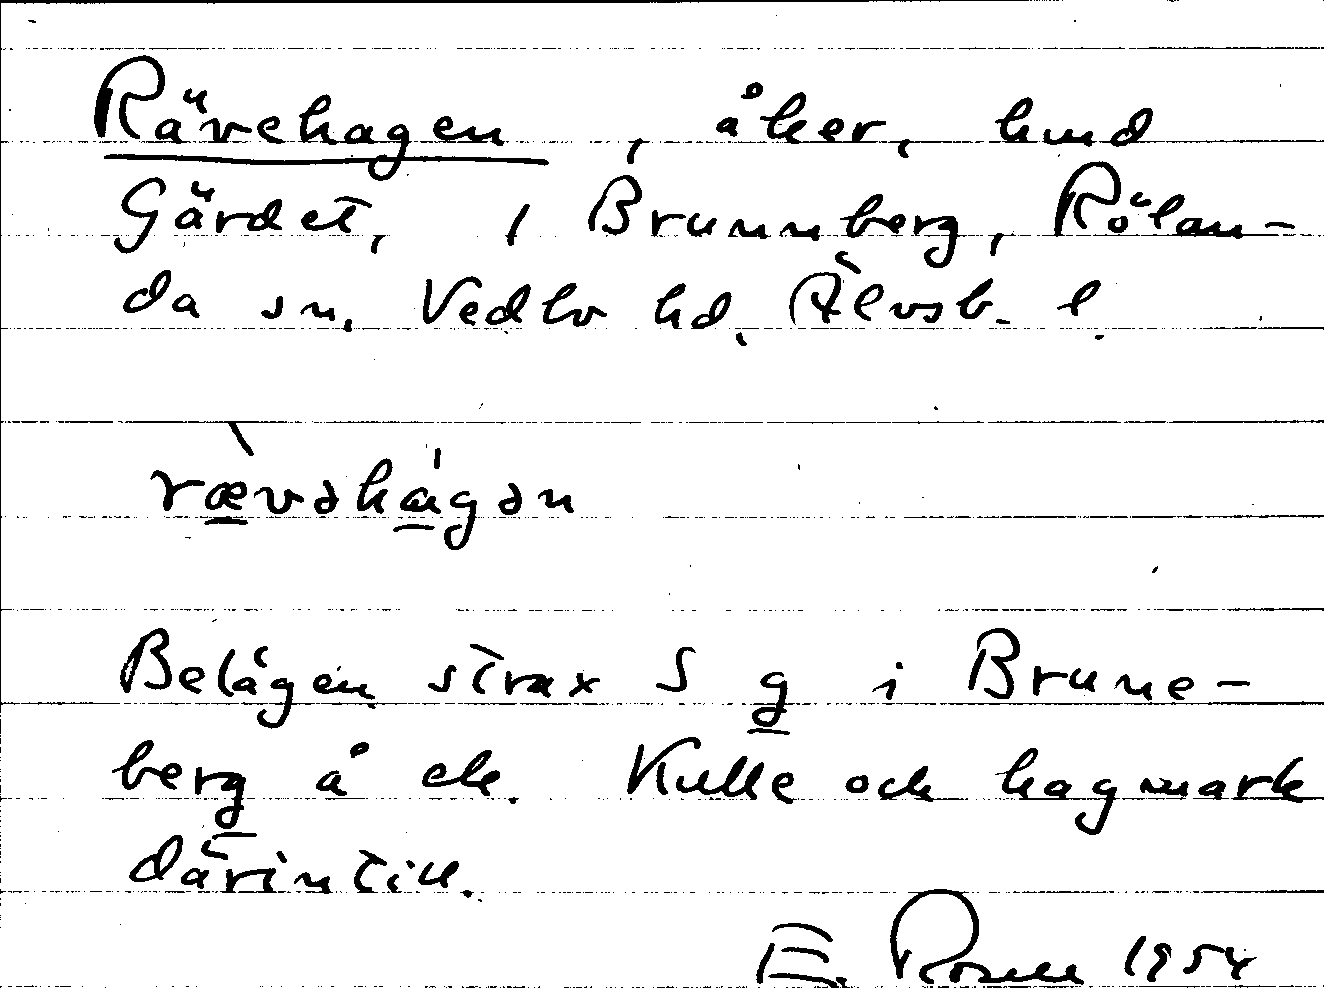 Rävehagen, åker, kund
Gärdet, i Brunnberg, Rölan-
da sn. Vedbo hd. Älvsb. l.
rævəhagən
Belägen strax S g i Brune-
berg å ek. Kulle och hagmark
därintill.
E. Rosell 1954